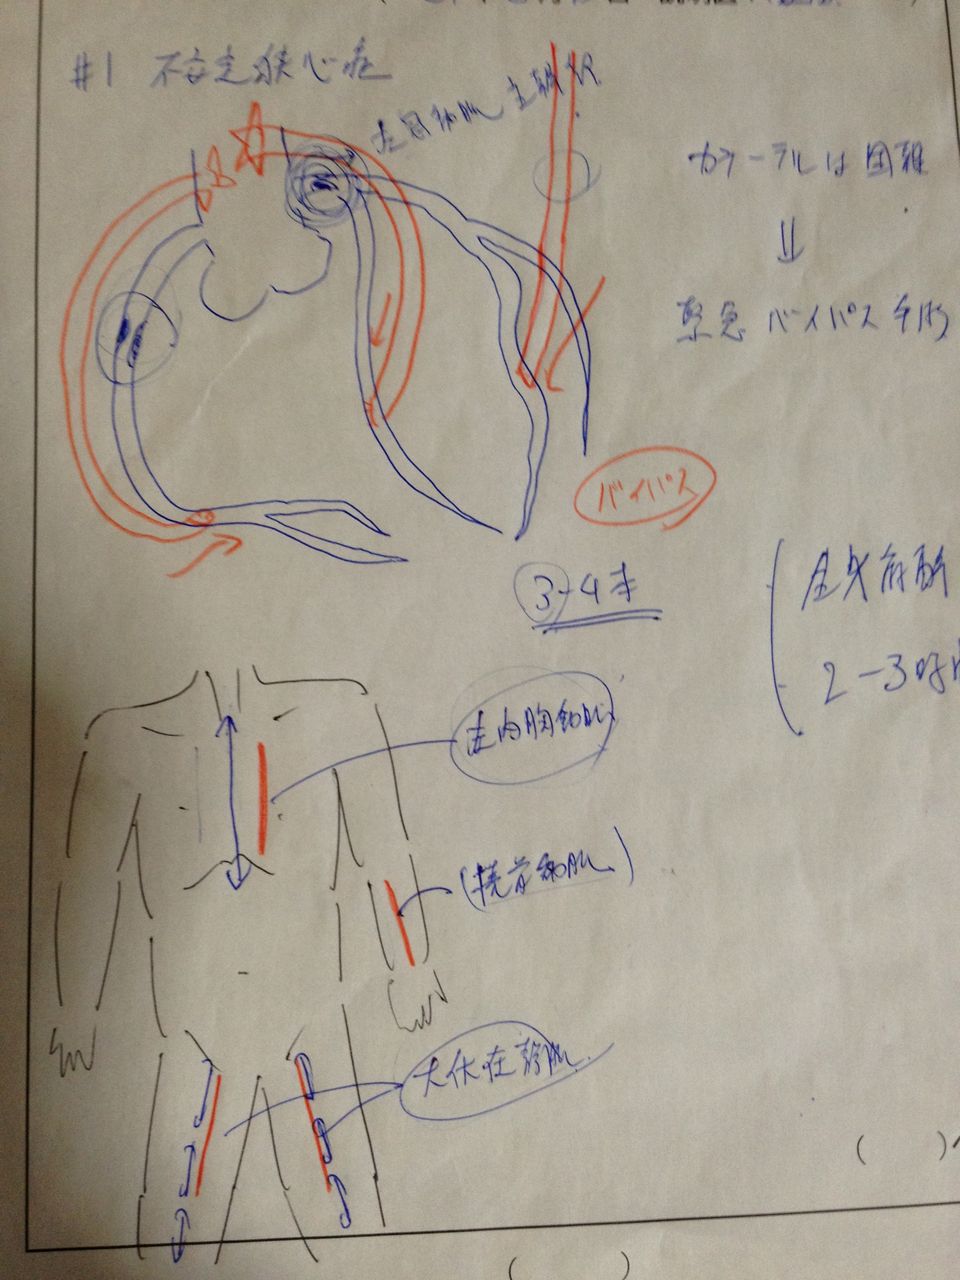 #1 不安定狭心症
左冠動脈主幹部
カテーテルは困難
⇓
緊急バイパス手術
バイパス
3-4本
全身麻酔
2-3時間
左内胸動脈
(橈骨動脈)
大伏在静脈
( )
( )